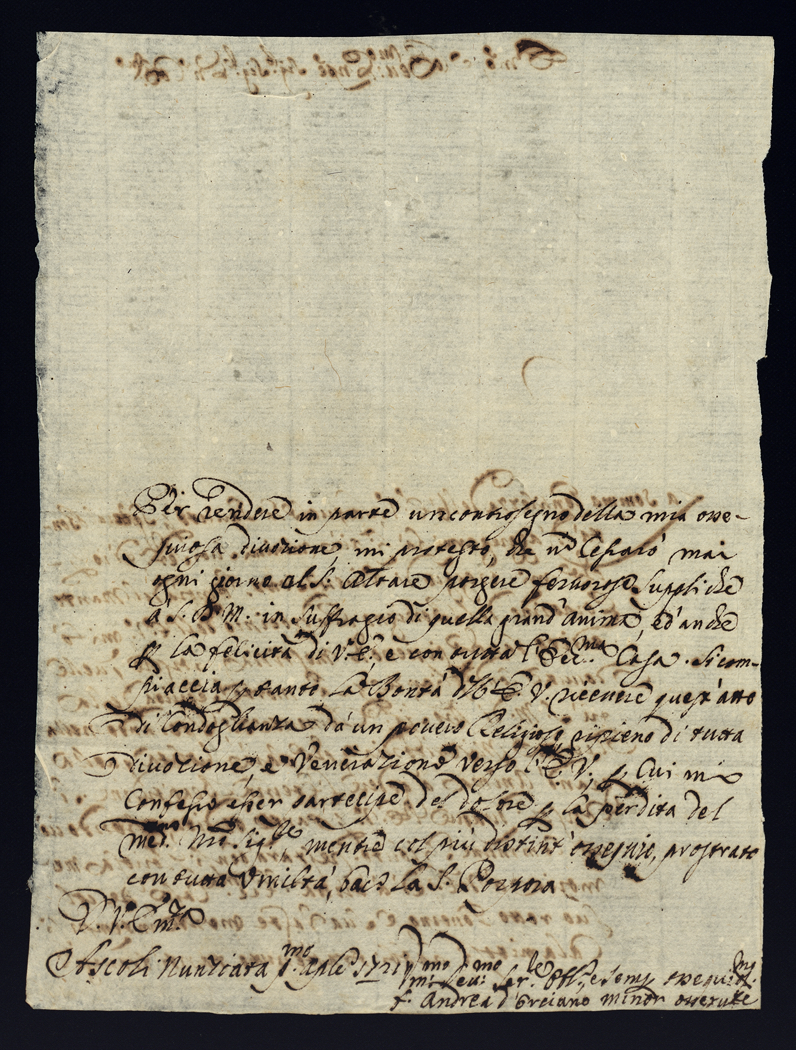 Per rendere in parte un controsegno della mia osse-
quiosa divozione, mi protesto, che n̄ Cesarò mai
ogni giorno al S. Altare porgere fervorose Suppliche
à S. D. M. in Suffragio di quella grand' anima, ed' anche
p la felicità di V. E. e con tutta l'Ecc.ma Casa. Si com-
piaccia p tanto La Bontà dell' E. V. ricevere quest' atto
di Condoglianza da un povero Religioso ripieno di tutta
divozione, e Venerazione verso l'E. V., p Cui mi
Confesso esser partecipe del dolore p la perdita del
med.mo Sig.re, mentre col più distint' ossequio, prostrato
con tutta Umiltà, bacio La S. Porpora
D. V. Em.za
Ascoli Nunziata p.mo Aple 1721
Um.mo Dev.mo Ser.re Obl. e Semp. ossequi.mo
f. Andrea d'Orciano minor osserv.te